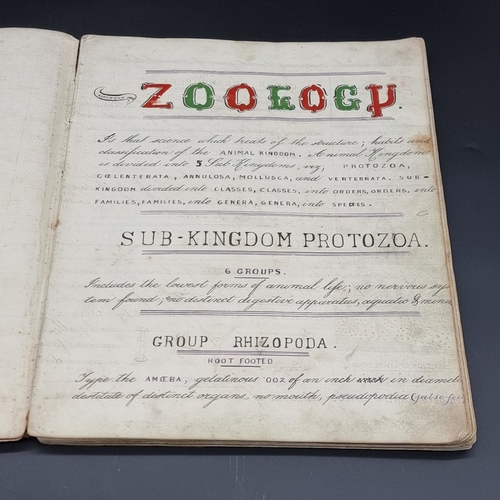 ZOOLOGY.
Is that science which treats of the structure; habits and
classification of the ANIMAL KINGDOM. Animal Kingdom
is divided into 5 Sub Kingdoms; viz, PROTOZOA,
CŒLENTERATA, ANNULOSA, MOLLUSCA, and VERTEBRATA. SUB-
KINGDOM divided into CLASSES, CLASSES, into ORDERS, ORDERS, into
FAMILIES, FAMILIES, into GENERA, GENERA, into SPECIES.
SUB-KINGDOM PROTOZOA.
6 GROUPS.
Includes the lowest forms of animal life; no nervous sys
tem found; no distinct degestive apparatus, aquatic & minu
GROUP RHIZOPODA.
ROOT FOOTED
Type the AMŒBA, gelatinous '002 of an inch in diamete
destitute of distinct organs, no mouth, pseudopodia (false feet